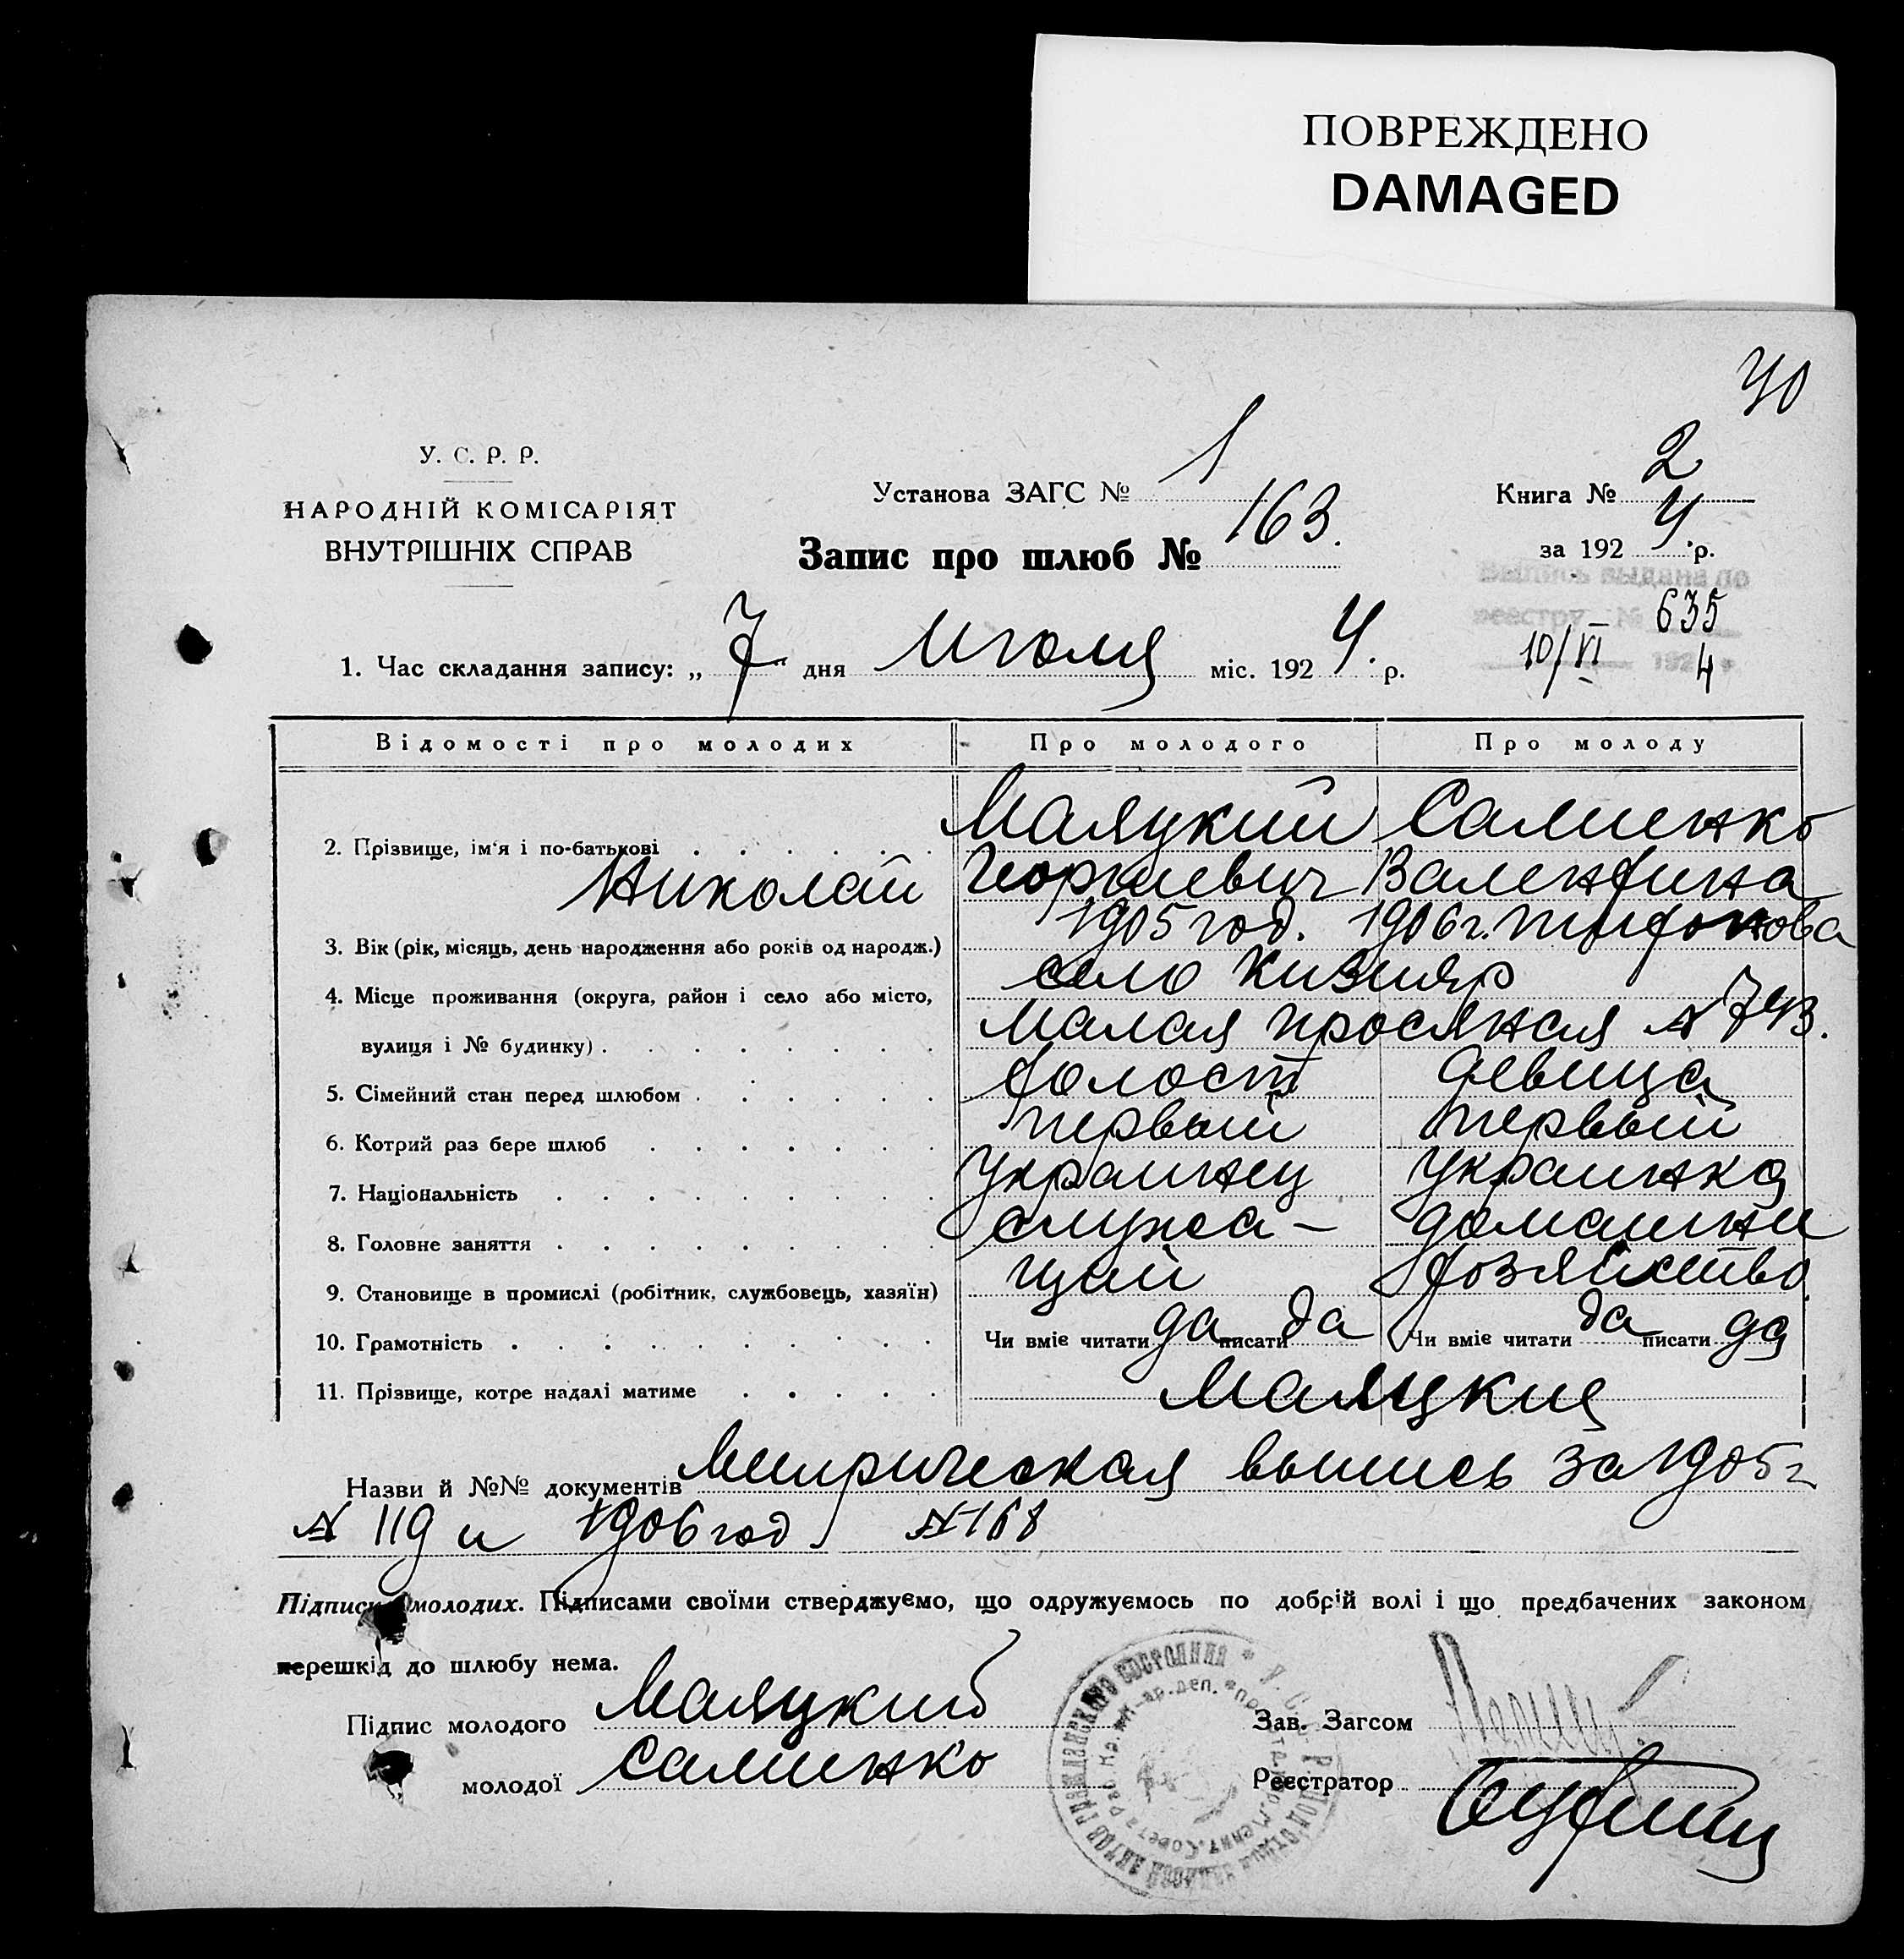 ПОВРЕЖДЕНО
DAMAGED
40
У. С. Р. Р.
НАРОДНІЙ КОМІСАРІЯТ
ВНУТРІШНІХ СПРАВ
Установа ЗАГС № 1
Запис про шлюб № 163.
Книга № 2
за 1924 р.
Выпись выдана по
реестру № 635
10/VI 1924 г.
1. Час складання запису: „7" дня Июля міс. 1924. р.
Відомості про молодих Про молодого Про молоду
2. Прізвище, ім'я і по-батькові Маяцкий Салиенко
Николай Георгиевич Валентина
3. Вік (рік, місяць, день народження або років од народж.) 1905 год. 1906 г. Трифонова
4. Місце проживання (округа, район і село або місто, село Кизияр
вулиця і № будинку) Малая Просяная № 743.
5. Сімейний стан перед шлюбом холост девица
6. Котрий раз бере шлюб первый первый
7. Національність Украинец Украинка
8. Головне заняття служа- домашне
9. Становище в промислі (робітник, службовець, хазяїн) щий хозяйство
10. Грамотність Чи вміє читати да писати да Чи вміє читати да писати да
11. Прізвище, котре надалі матиме Маяцкие
Назви й №№ документів Метрическая выпись за 1905 г
№ 119 и 1906 год № 168
Підписи молодих. Підписами своїми стверджуємо, що одружуємось по добрій волі і що предбачених законом
перешкід до шлюбу нема.
Підпис молодого Маяцкий
молодої Салиенко
Зав. Загсом
Реєстратор